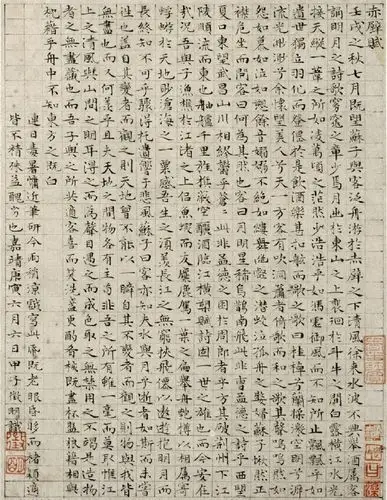 赤壁賦
壬戌之秋七月既望蘇子與客泛舟遊於赤壁之下清風徐來水波不興舉酒屬客
誦明月之詩歌窈窕之章少焉月出於東山之上裵徊於斗牛之間白露橫江水光
接天縱一葦之所如凌萬頃之茫然浩浩乎如馮虛御風而不知所止飄飄乎如
遺世獨立羽化而登僊於是飲酒樂甚扣舷而歌之歌曰桂棹兮蘭槳擊空明兮泝
流光渺渺兮余懷望美人兮天一方客有吹洞簫者倚歌而和之其聲嗚嗚然如
怨如慕如泣如愬餘音嫋嫋不絕如縷舞幽壑之潛蛟泣孤舟之嫠婦蘇子愀然正
襟危坐而問客曰何為其然也客曰月明星稀烏鵲南飛此非曹孟德之詩乎西望
夏口東望武昌山川相繆鬱乎蒼蒼此非孟德之困於周郎者乎方其破荊州下江
陵順流而東也舳艫千里旌旗蔽空釃酒臨江橫槊賦詩固一世之雄也而今安在
哉況吾與子漁樵於江渚之上侶魚蝦而友麋鹿駕一葉之扁舟舉匏樽以相屬寄
蜉蝣於天地眇滄海之一粟哀吾生之須臾羨長江之無窮挾飛僊以遨遊抱明月而
長終知不可乎驟得托遺響於悲風蘇子曰客亦知夫水與月乎逝者如斯而未嘗
往也盈虛者如彼而卒莫消長也蓋將自其變者而觀之則天地曾不能以一瞬自其不變者而觀之則物與我皆
無盡也而又何羨乎且夫天地之間物各有主苟非吾之所有雖一毫而莫取惟江
上之清風與山間之明月耳得之而為聲目遇之而成色取之無禁用之不竭是造物
者之無盡藏也而吾與子之所共適客喜而笑洗盞更酌肴核既盡杯盤狼藉相與
枕藉乎舟中不知東方之既白
連日毒暑慵近筆研今雨稍涼戲寫此紙既老眼昏眵而楮穎適
皆不精殊益醜劣也嘉靖庚寅六月六日甲子徵明識